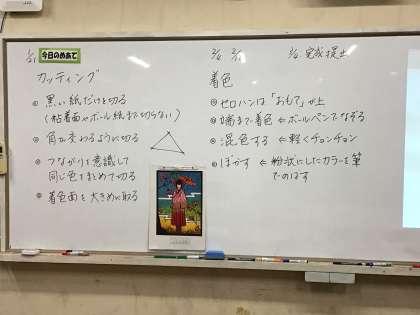 1/21 今日のめあて
カッティング
◎ 黒い紙だけを切る
(粘着面やボール紙まで切らない)
◎ 角が交わるように切る
◎ つながりを意識して
同じ色をまとめて切る
◎ 着色面を大きめに取る
完成提出
着色
◎ セロハンは「おもて」が上
◎ 端まで着色 ← ボールペンでなぞる
◎ 混色する ← 軽くチョンチョン
◎ ぼかす ← 粉状にしたカラーを筆
でのばす